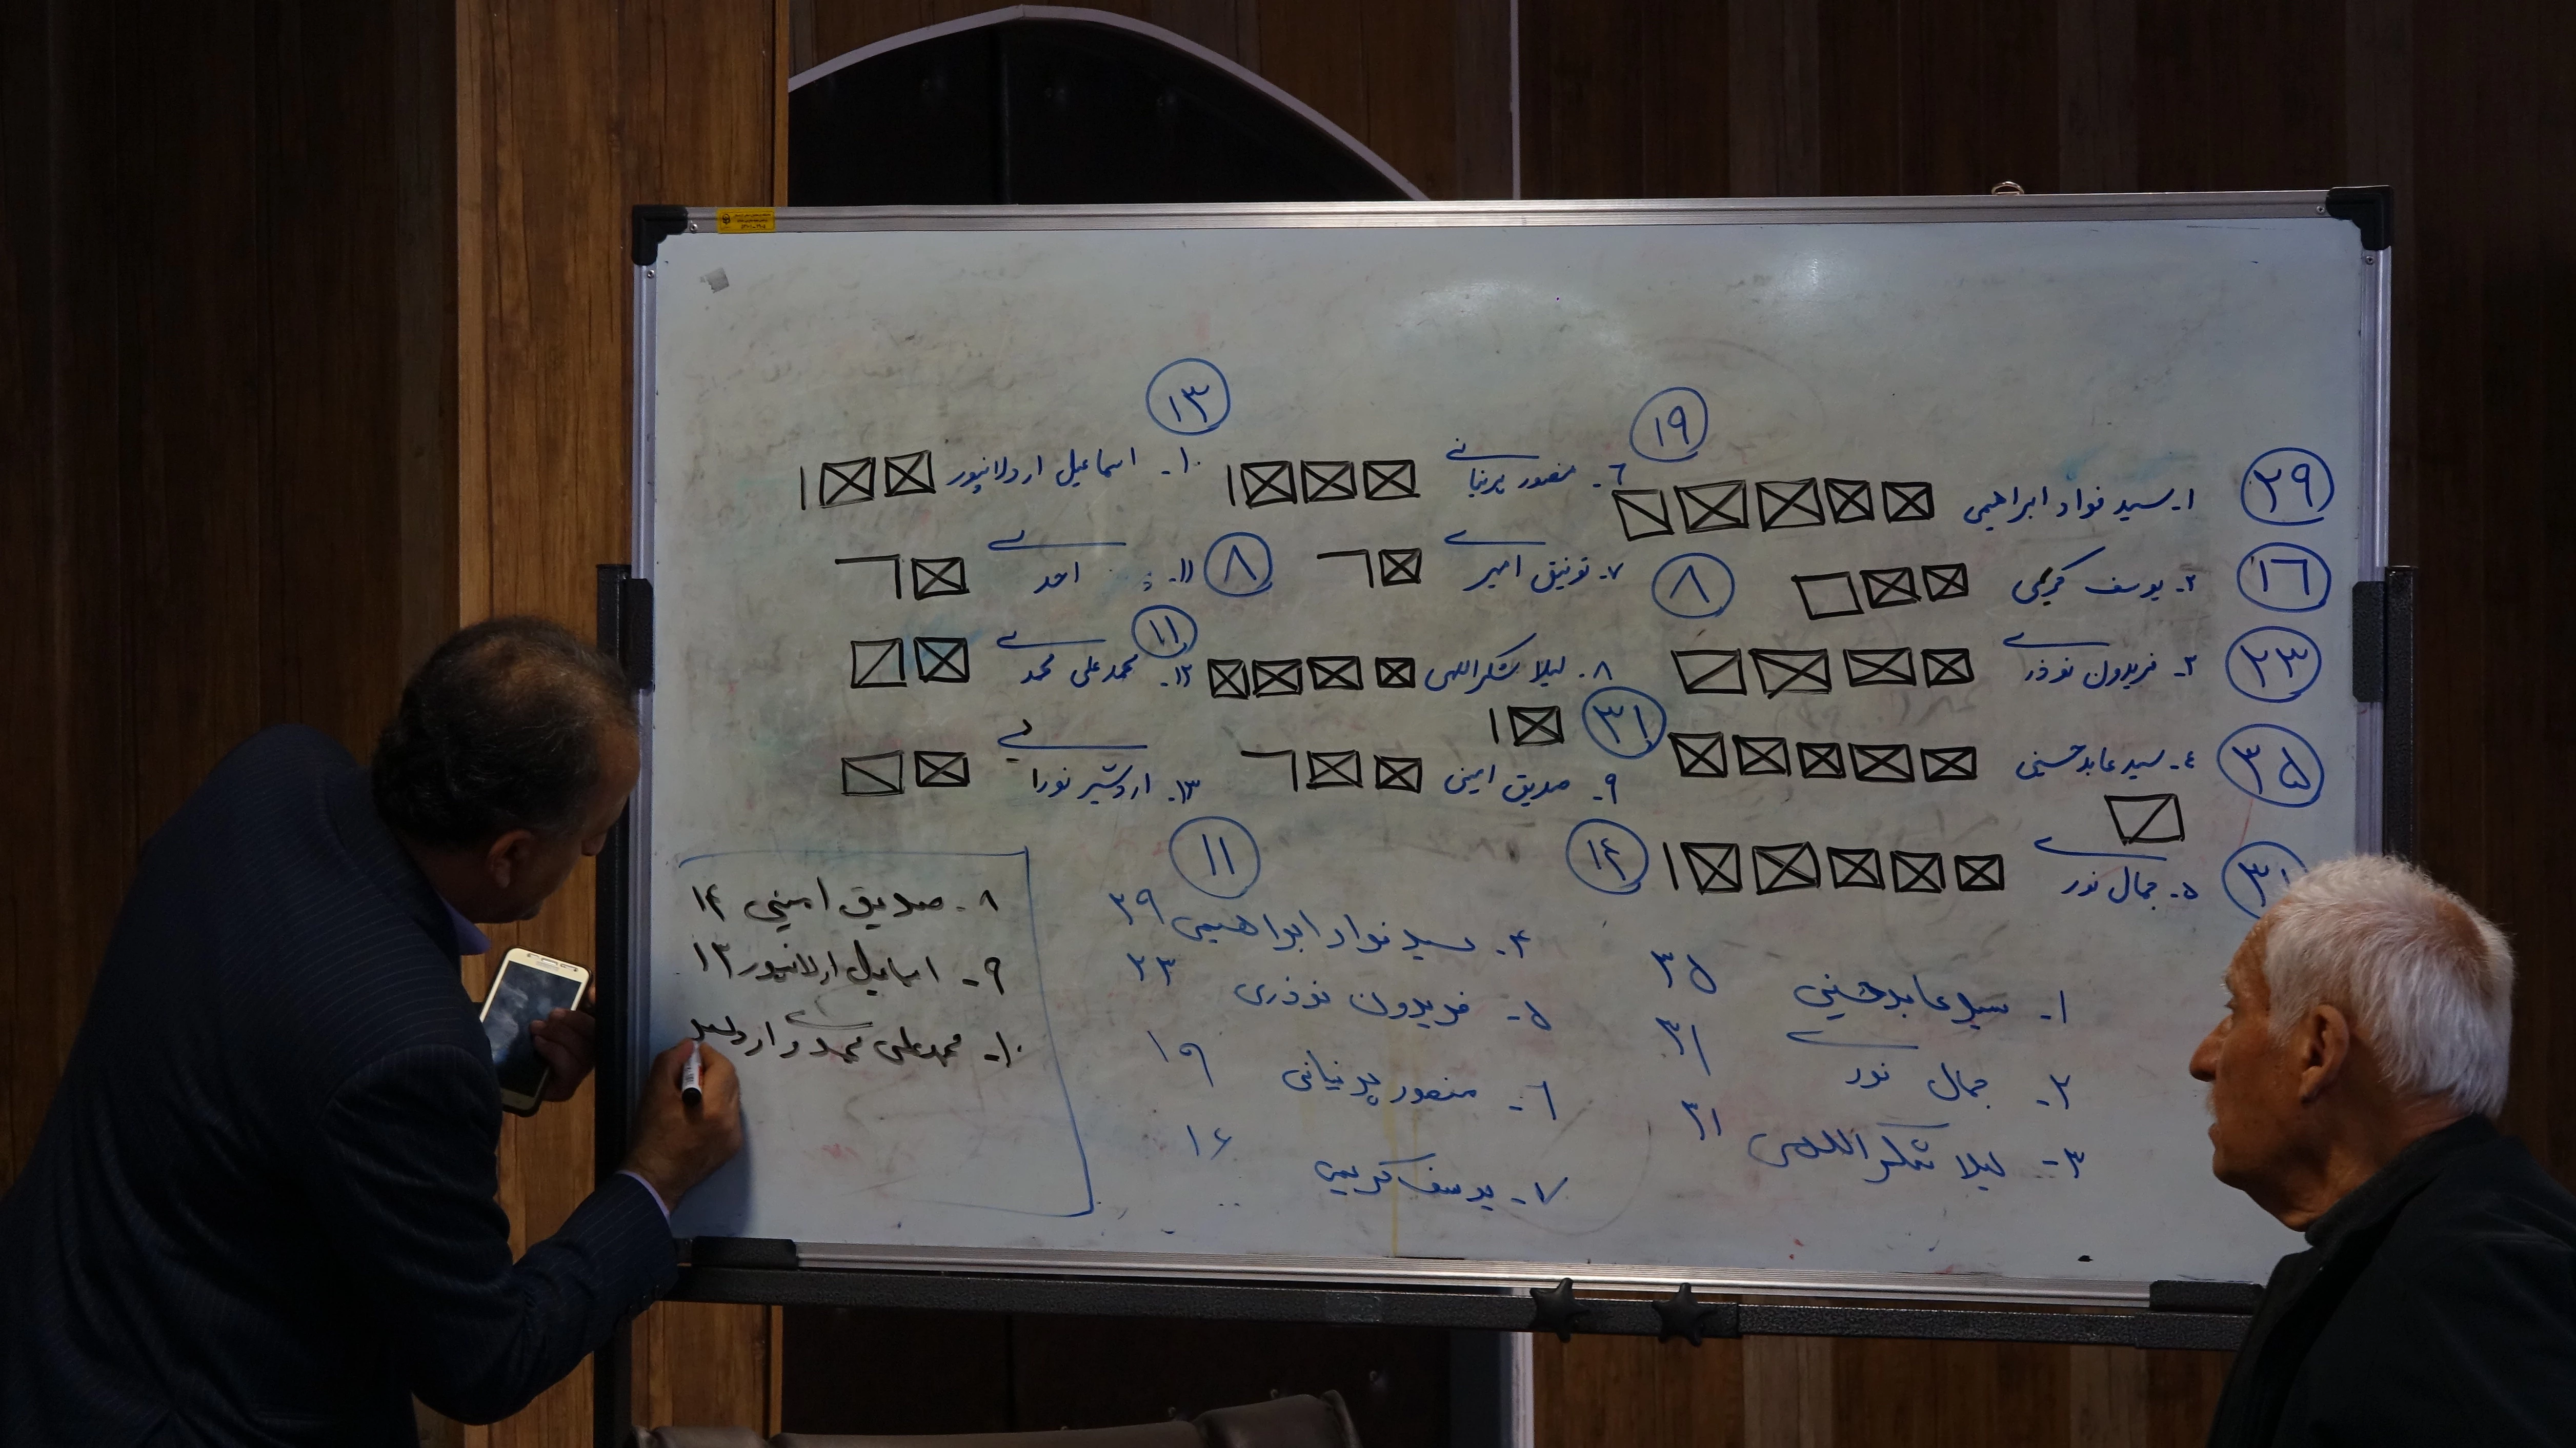 ۲۹ ۱- سید فواد ابراهیمی
۱۶ ۲- یوسف کریمی
۲۳ ۳- فریدون نوذری
۳۵ ۴- سید عابد حسینی
۳۱ ۵- جمال نوری
۱۹ ۶- منصور پرنیانی
۸ ۷- توفیق امیری
۳۱ ۸- لیلا شکراللهی
۱۴ ۹- صدیق امینی
۱۳ ۱۰- اسماعیل اردلانپور
۸ ۱۱- احمدی
۱۱ ۱۲- محمدعلی محمدی
۱۱ ۱۳- اردشیر نورا
۱- سید عابد حسینی ۳۵
۲- جمال نوری ۳۱
۳- لیلا شکراللهی ۳۱
۴- سید فواد ابراهیمی ۲۹
۵- فریدون نوذری ۲۳
۶- منصور پرنیانی ۱۹
۷- یوسف کریمی ۱۶
۸- صدیق امینی ۱۴
۹- اسماعیل اردلانپور ۱۳
۱۰- محمدعلی محمدی و